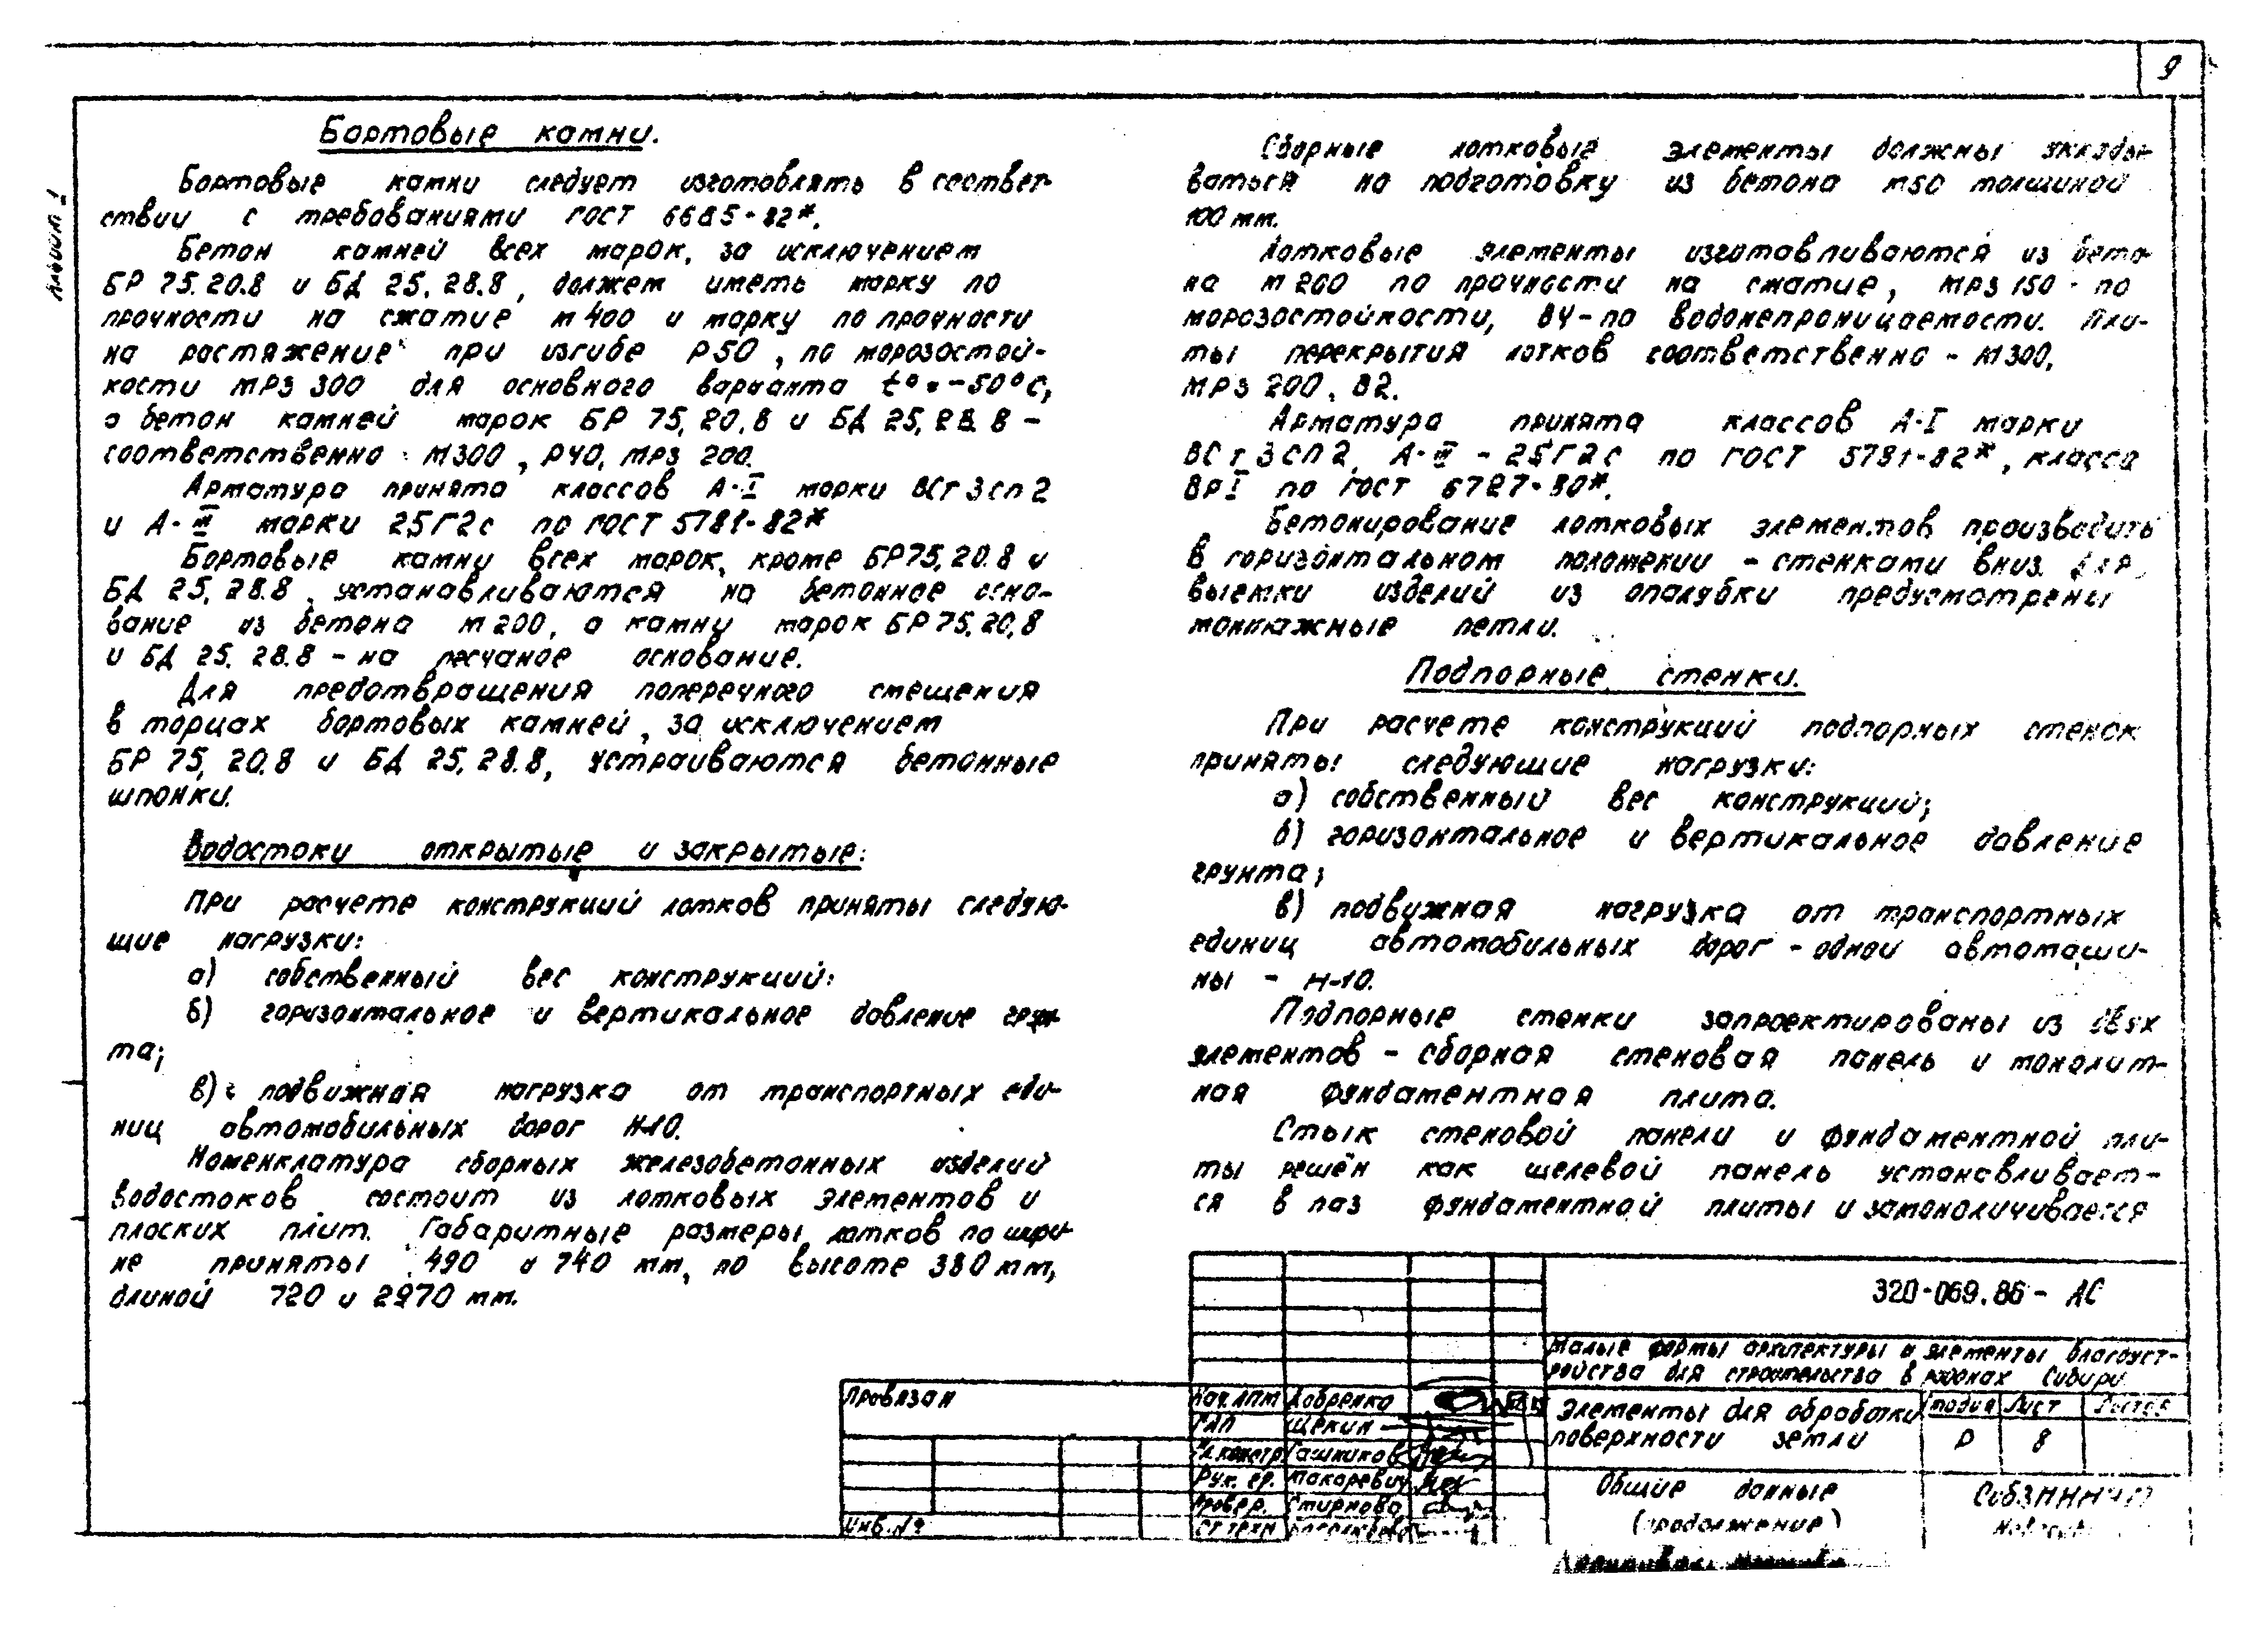 9
Альбом 1
Бортовые камни.
Бортовые камни следует изготовлять в соответ-
ствии с требованиями ГОСТ 6665-82*.
Бетон камней всех марок, за исключением
БР 75.20.8 и БД 25.28.8, должен иметь марку по
прочности на сжатие М400 и марку по прочности
на растяжение при изгибе Р50, по морозостой-
кости МРЗ 300 для основного варианта t°=-50°С,
а бетон камней марок БР 75.20.8 и БД 25.28.8 -
соответственно М300, Р40, МРЗ 200.
Арматура принята классов А-I марки ВСт3сп2
и А-III марки 25Г2с по ГОСТ 5781-82*
Бортовые камни всех марок, кроме БР75.20.8 и
БД 25.28.8, устанавливаются на бетонное осно-
вание из бетона М200, а камни марок БР75.20.8
и БД 25.28.8 - на песчаное основание.
Для предотвращения поперечного смещения
в торцах бортовых камней, за исключением
БР 75.20.8 и БД 25.28.8, устраиваются бетонные
шпонки.
Водостоки открытые и закрытые:
При расчете конструкций лотков приняты следую-
щие нагрузки:
а) собственный вес конструкций:
б) горизонтальное и вертикальное давление грун-
та;
в) подвижная нагрузка от транспортных еди-
ниц автомобильных дорог Н-10.
Номенклатура сборных железобетонных изделий
водостоков состоит из лотковых элементов и
плоских плит. Габаритные размеры лотков по шири-
не приняты 490 и 740 мм, по высоте 380 мм,
длиной 720 и 2970 мм.
Сборные лотковые элементы должны уклады-
ваться на подготовку из бетона М50 толщиной
100 мм.
Лотковые элементы изготавливаются из бето-
на М200 по прочности на сжатие, МРЗ 150 - по
морозостойкости, В4 - по водонепроницаемости. Пли-
ты перекрытия лотков соответственно - М300,
МРЗ 200, В2.
Арматура принята классов А-I марки
ВСт3сп2, А-III - 25Г2с по ГОСТ 5781-82*, класса
ВрI по ГОСТ 6727-80*.
Бетонирование лотковых элементов производить
в горизонтальном положении - стенками вниз. Для
выемки изделий из опалубки предусмотрены
монтажные петли.
Подпорные стенки.
При расчете конструкций подпорных стенок
приняты следующие нагрузки:
а) собственный вес конструкций;
б) горизонтальное и вертикальное давление
грунта;
в) подвижная нагрузка от транспортных
единиц автомобильных дорог - одной автомаши-
ны - Н-10.
Подпорные стенки запроектированы из двух
элементов - сборная стеновая панель и монолит-
ная фундаментная плита.
Стык стеновой панели и фундаментной пли-
ты решён как щелевой панель устанавливает-
ся в паз фундаментной плиты и замоноличивается
320-069.86 - АС
Малые формы архитектуры и элементы благоуст-
ройства для строительства в районах Сибири
Привязан
Инв.№
Нач. АПМ Добренко
ГАП Щекин
Гл.констр Гашников
Рук. гр. Макаревич
Провер. Смирнова
Ст.техн
Элементы для обработки
поверхности земли
Стадия Лист Листов
Р 8
Общие данные
(продолжение)